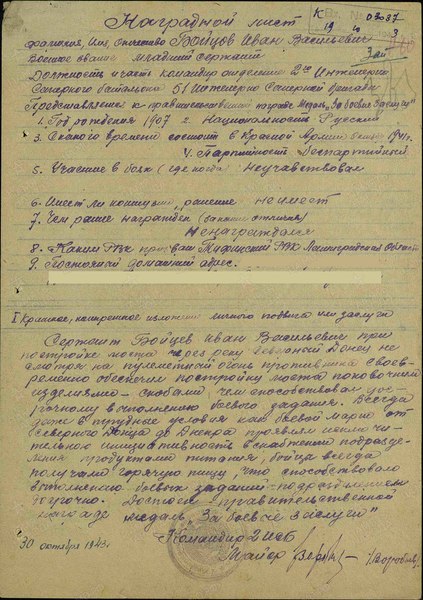 Наградной лист
Фамилия, Имя, Отчество Бойцов Иван Васильевич
Военное звание младший сержант
Должность, часть командир отделения 2го Инженерно
Саперного батальона 51 Инженерно Саперной бригады
Представляется к правительственной награде Медаль "За боевые Заслуги"
1. Год рождения 1907 2. Национальность Русский
3. С какого времени состоит в Красной Армии 1941г.
4. Партийность Беспартийный
5. Участие в боях (где когда) Не участвовал
6. Имеет ли ранение Не имеет
7. Чем ранее награжден (за какие отличия)
Не награждался
8. Каким РВК призван РВК Ленинградская Область
9. Постоянный домашний адрес.
I Краткое, конкретное изложение личного подвига или заслуги
Сержант Бойцов Иван Васильевич при
постройке моста через реку Северный Донец не
смотря на пулеметный огонь противника свое-
временно обеспечил постройку моста поковочными
изделиями – скобами, чем способствовал дос-
рочному выполнению боевого задания. Всегда
даже в трудных условиях как боевой марш от
Северного Донца до Днепра проявлял исключи-
тельную инициативность в снабжении подразде-
ления продуктами питания, бойцы всегда
получали горячую пищу, что способствовало
выполнению боевых заданий подразделением
досрочно. Достоин правительственной
награде медаль "За боевые заслуги"
Командир 2 ИСБ
Майор
30 октября 1943г.